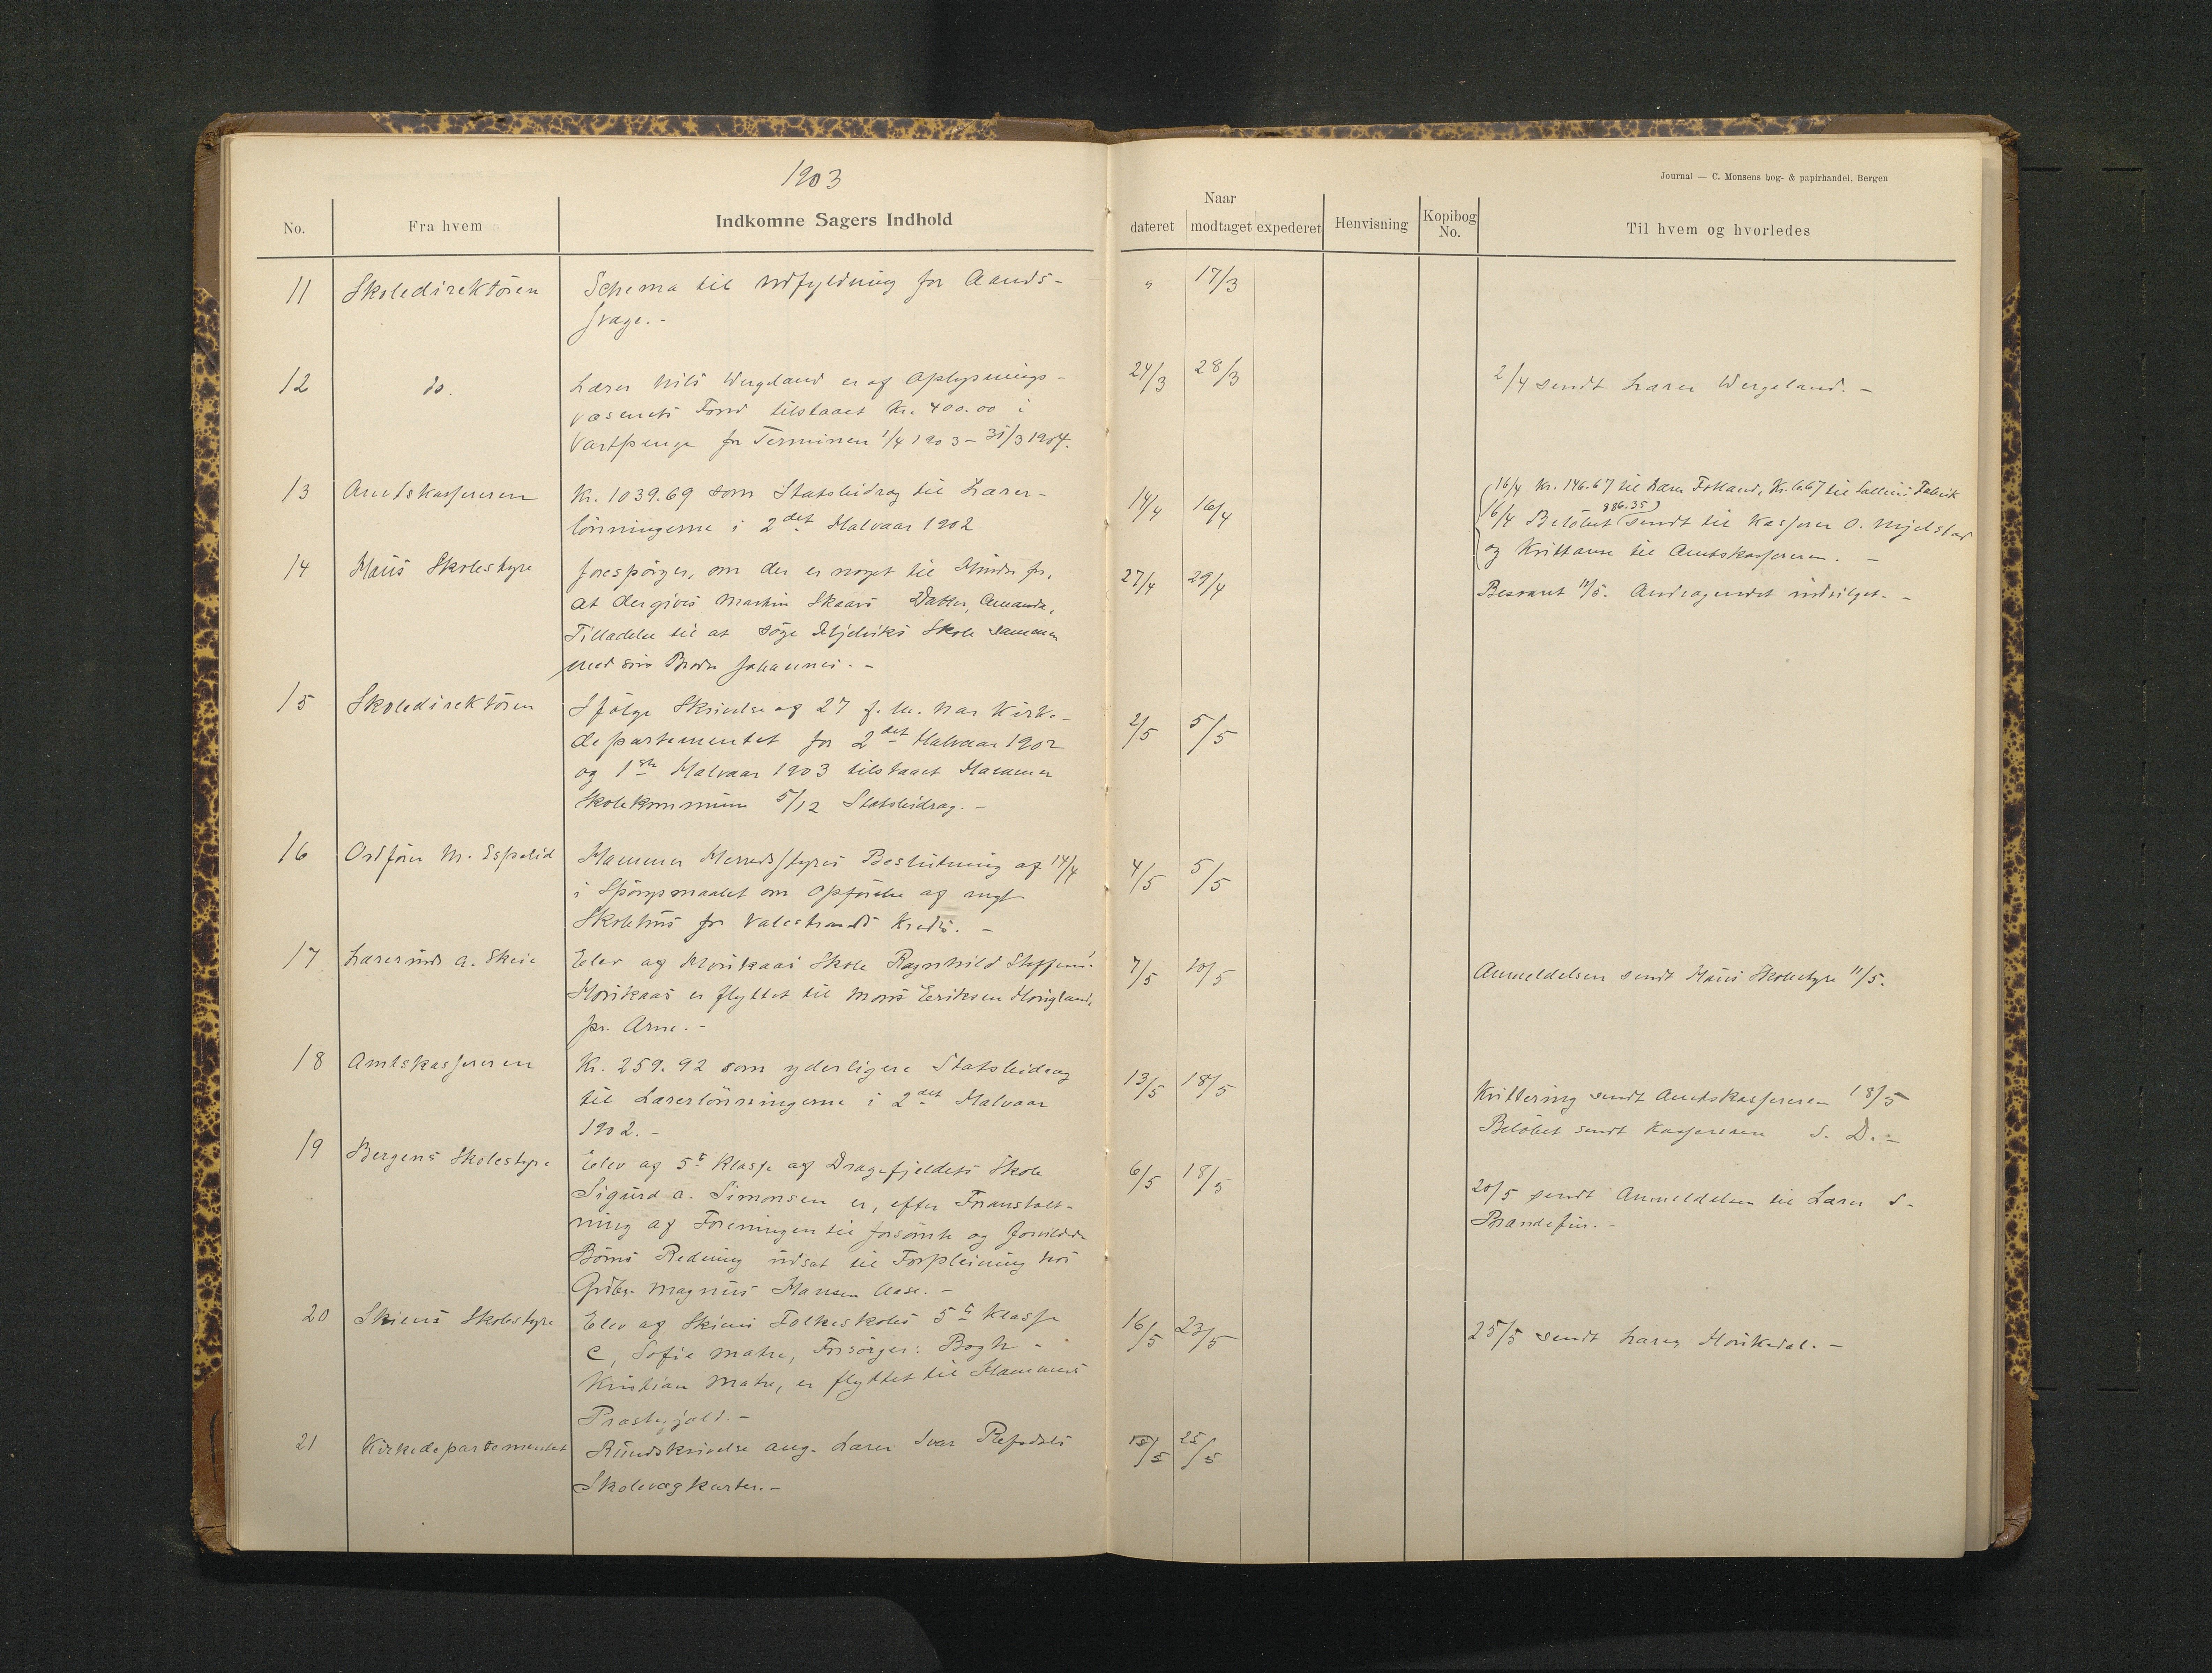 1903
Journal — C. Monsens bog- & papirhandel, Bergen
No.
Fra hvem
Indkomne Sagers Indhold
Naar
dateret modtaget expederet
Henvisning
Kopibog
No.
Til hvem og hvorledes
11 Skoledirektören Schema til Udfyldning for Aands- " 17/3
svage. -
12 do. Lærer Nils Wergeland er af Oplysnings- 24/3 28/3 2/4 sendt Lærer Wergeland. -
væsenets Fond tilstaaet Kr. 400.00 i
Vartpenge for Terminen 1/4 1903 - 31/3 1904.
13 Amtskassereren Kr. 1039.69 som Statsbidrag til Lærer- 14/4 16/4 16/4 Kr. 146.67 til Lærer Fotland, Kr. 6.67 til
lönningerne i 2det Halvaar 1902 16/4 Belöbet (886.35) sendt til Kasserer O. Mjelstad
og Kvittance til Amtskassereren. -
14 Haus Skolestyre forespörger, om der er noget til Hinder for, 27/4 29/4 Besvaret 11/5. Andragendet indvilget. -
at der gives Martin Skaars Datter, Amanda,
Tilladelse til at söge Mjelviks Skole sammen
med sin Broder Johannes. -
15 Skoledirektören Ifölge Skrivelse af 27 f. M. har Kirke- 2/5 5/5
departementet for 2det Halvaar 1902
og 1ste Halvaar 1903 tilstaaet Hammer
Skolekommune 5/12 Statsbidrag. -
16 Ordförer M. Espelid Hammer Herredsstyres Beslutning af 14/4 4/5 5/5
i Spörgsmaalet om Opförelse af nyt
Skolehus for Valestrands Kreds. -
17 Lærerinde A. Skeie Elev af Hourkaas Skole Ragnhild Steffens. 7/5 10/5 Anmeldelsen sendt Haus Skolestyre 11/5.
Hourkaas er flyttet til Mons Eeriksen Hougland,
pr. Arne. -
18 Amtskassereren Kr. 259.92 som yderligere Statsbidrag 13/5 18/5 Kvittering sendt Amtskassereren 18/5
til Lærerlönningerne i 2det Halvaar
1902. - Belöbet sendt Kassereren s. D. -
19 Bergens Skolestyre Elev af 5te Klasse af Dragefjeldets Skole 6/5 18/5
Sigurd A. Simonsen er, efter Foranstalt- 20/5 sendt Anmeldelsen til Lærer S.
ning af Foreningen til forsömte og forvildede Brandefur. -
Börns Redning udsat til Forpleining hos
Grdbr. Magnus Hansen Aase. -
20 Skiens Skolestyre Elev af Skiens Folkeskoles 5te Klasse 16/5 23/5 25/5 sendt Lærer Hourkedal. -
C, Sofie Matre, Forsörger: Bogh -
Kristian Matre, er flyttet til Hammers
Præstegjeld. -
21 Kirkedepartementet Rundskrivelse ang. Lærer Ivar Refsdals 15/5 25/5
Skolevægkarter. -